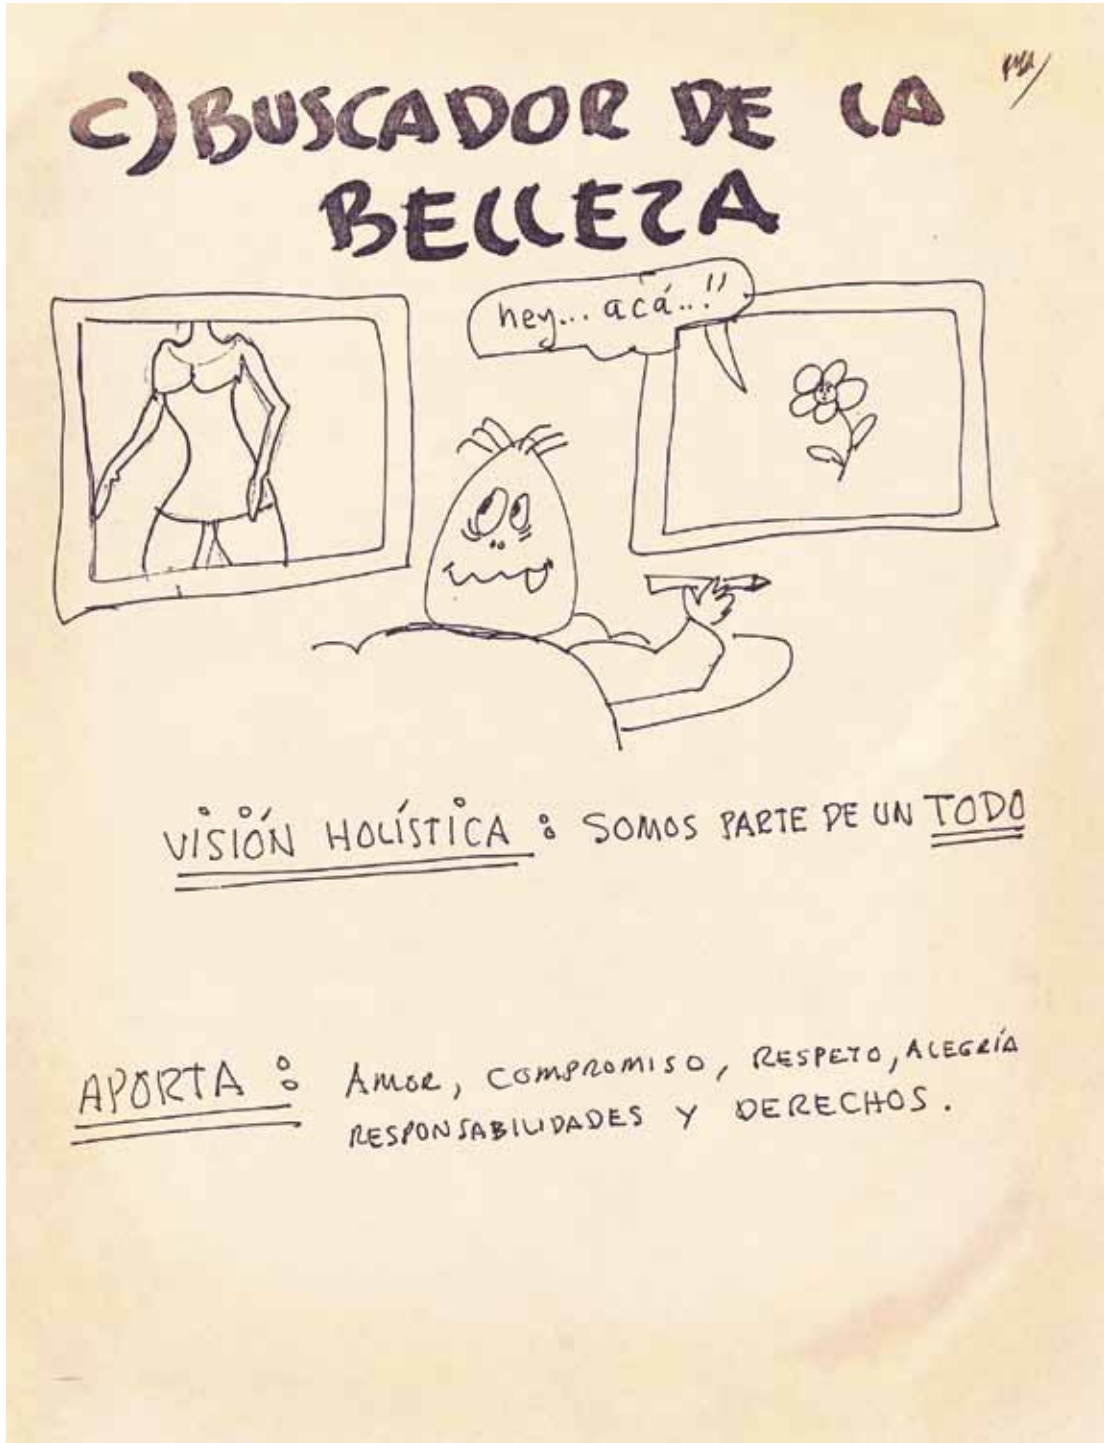 C) BUSCADOR DE LA
BELLEZA
hey... acá...!!
VISIÓN HOLÍSTICA : SOMOS PARTE DE UN TODO
APORTA : AMOR, COMPROMISO, RESPETO, ALEGRÍA
RESPONSABILIDADES Y DERECHOS.